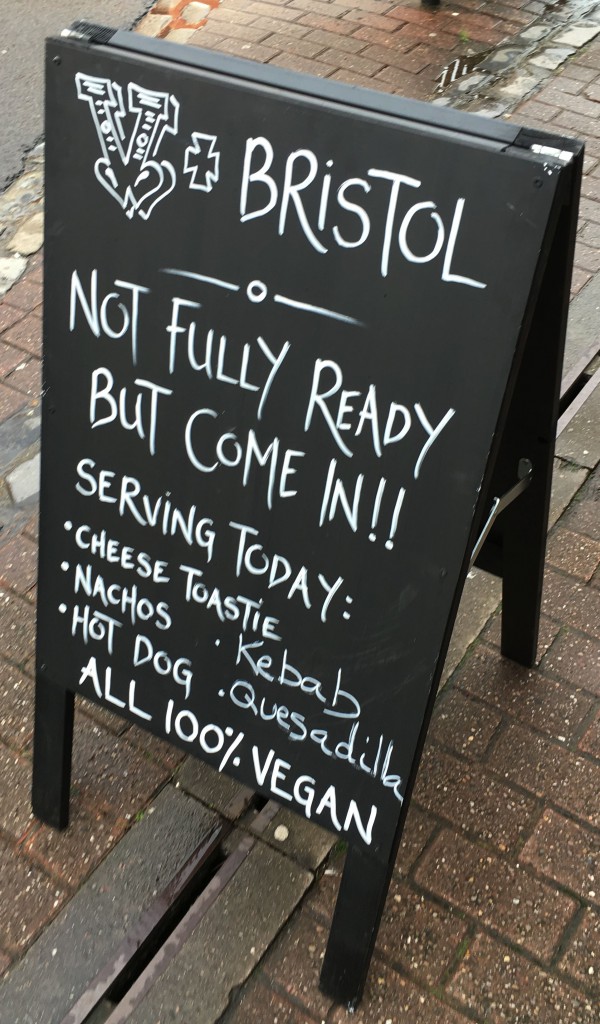 V+ BRiSTOL
NOT FULLY READY
BUT COME IN!!
SERViNG TODAY:
• CHEESE TOASTIE
• NACHOS
• Kebab
• HOT DOG
• Quesadilla
ALL 100% VEGAN